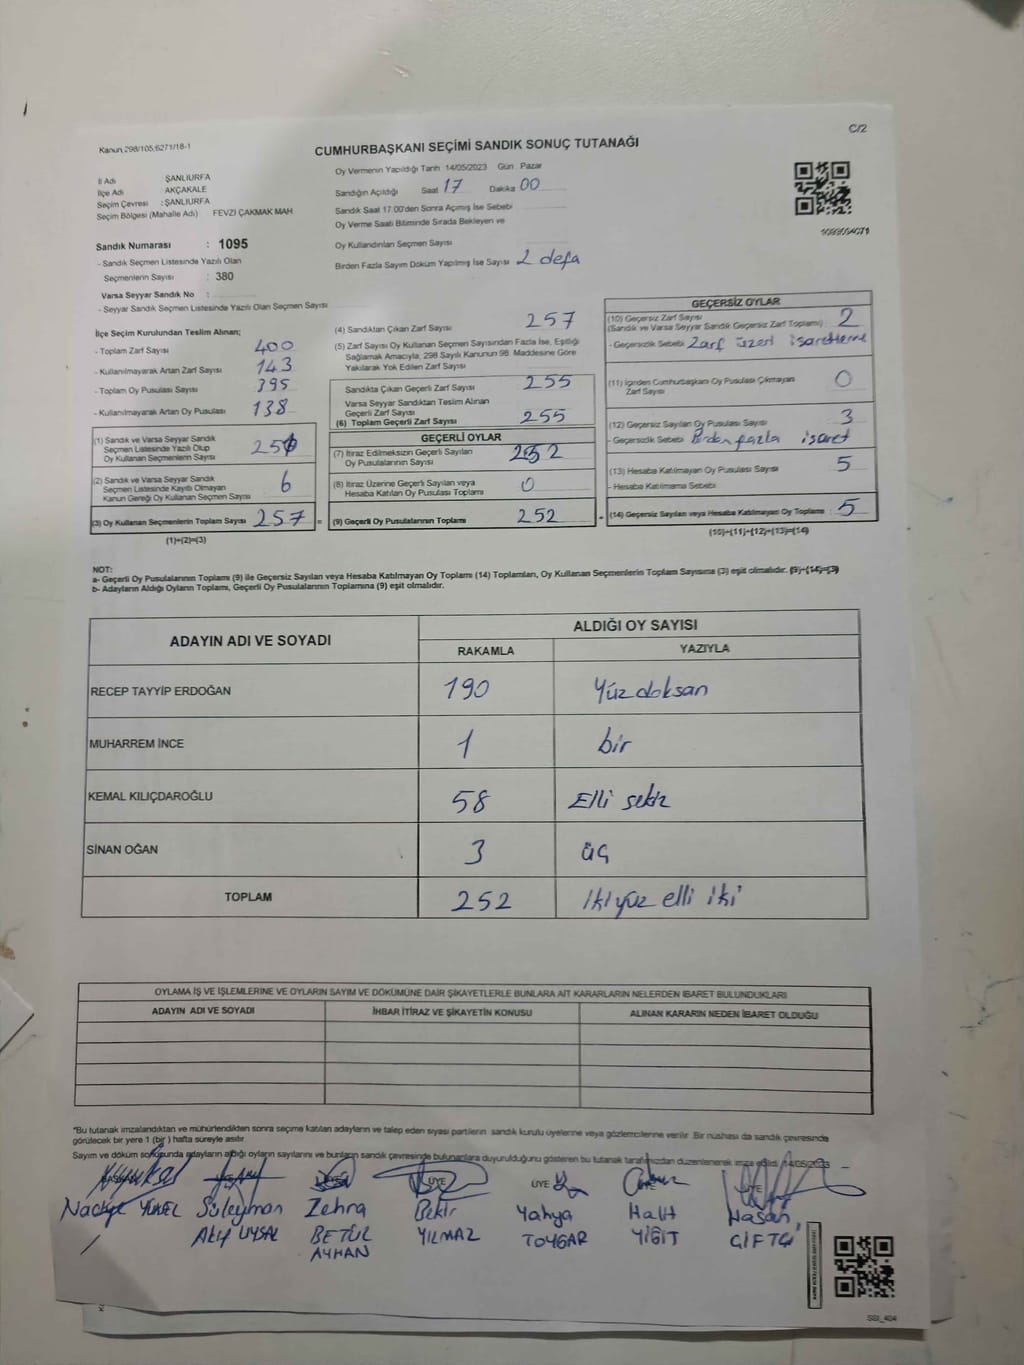 C/2
Kanun 298/105,6271/18-1
CUMHURBAŞKANI SEÇİMİ SANDIK SONUÇ TUTANAĞI
İl Adı ŞANLIURFA
İlçe Adı AKÇAKALE
Seçim Çevresi : ŞANLIURFA
Seçim Bölgesi (Mahalle Adı) FEVZİ ÇAKMAK MAH
Sandık Numarası : 1095
- Sandık Seçmen Listesinde Yazılı Olan
Seçmenlerin Sayısı : 380
Varsa Seyyar Sandık No :
- Seyyar Sandık Seçmen Listesinde Yazılı Olan Seçmen Sayısı
Oy Vermenin Yapıldığı Tarih 14/05/2023 Gün : Pazar
Sandığın Açıldığı Saat 17 Dakika 00
Sandık Saat 17:00'den Sonra Açılmış İse Sebebi
Oy Verme Saati Bitiminde Sırada Bekleyen ve
Oy Kullandırılan Seçmen Sayısı
Birden Fazla Sayım Döküm Yapılmış İse Sayısı 2 defa
İlçe Seçim Kurulundan Teslim Alınan;
- Toplam Zarf Sayısı 400
- Kullanılmayarak Artan Zarf Sayısı 143
- Toplam Oy Pusulası Sayısı 395
- Kullanılmayarak Artan Oy Pusulası 138
(1) Sandık ve Varsa Seyyar Sandık
Seçmen Listesinde Yazılı Olup
Oy Kullanan Seçmenlerin Sayısı
(2) Sandık ve Varsa Seyyar Sandık
Seçmen Listesinde Kayıtlı Olmayan
Kanun Gereği Oy Kullanan Seçmen Sayısı 6
(3) Oy Kullanan Seçmenlerin Toplam Sayısı 257 =
(1)+(2)=(3)
(4) Sandıktan Çıkan Zarf Sayısı 257
(5) Zarf Sayısı Oy Kullanan Seçmen Sayısından Fazla İse, Eşitliği
Sağlamak Amacıyla, 298 Sayılı Kanunun 98. Maddesine Göre
Yakılarak Yok Edilen Zarf Sayısı
Sandıkta Çıkan Geçerli Zarf Sayısı 255
Varsa Seyyar Sandıktan Teslim Alınan
Geçerli Zarf Sayısı
(6) Toplam Geçerli Zarf Sayısı 255
GEÇERLİ OYLAR
(7) İtiraz Edilmeksizin Geçerli Sayılan
Oy Pusulalarının Sayısı 252
(8) İtiraz Üzerine Geçerli Sayılan veya
Hesaba Katılan Oy Pusulası Toplamı 0
(9) Geçerli Oy Pusulalarının Toplamı 252 +
GEÇERSİZ OYLAR
(10) Geçersiz Zarf Sayısı
(Sandık ve Varsa Seyyar Sandık Geçersiz Zarf Toplamı) 2
- Geçersizlik Sebebi Zarf üzeri işaretleme
(11) İçinden Cumhurbaşkanı Oy Pusulası Çıkmayan
Zarf Sayısı 0
(12) Geçersiz Sayılan Oy Pusulası Sayısı 3
- Geçersizlik Sebebi Birden fazla işaret
(13) Hesaba Katılmayan Oy Pusulası Sayısı 5
- Hesaba Katılmama Sebebi
(14) Geçersiz Sayılan veya Hesaba Katılmayan Oy Toplamı : 5
(10)+(11)+(12)+(13)=(14)
NOT:
a- Geçerli Oy Pusulalarının Toplamı (9) ile Geçersiz Sayılan veya Hesaba Katılmayan Oy Toplamı (14) Toplamları, Oy Kullanan Seçmenlerin Toplam Sayısına (3) eşit olmalıdır. (9)+(14)=(3)
b- Adayların Aldığı Oyların Toplamı, Geçerli Oy Pusulalarının Toplamına (9) eşit olmalıdır.
ADAYIN ADI VE SOYADI ALDIĞI OY SAYISI
RAKAMLA YAZIYLA
RECEP TAYYİP ERDOĞAN 190 Yüz doksan
MUHARREM İNCE 1 bir
KEMAL KILIÇDAROĞLU 58 Elli sekiz
SİNAN OĞAN 3 üç
TOPLAM 252 İkiyüz elli iki
OYLAMA İŞ VE İŞLEMLERİNE VE OYLARIN SAYIM VE DÖKÜMÜNE DAİR ŞİKAYETLERLE BUNLARA AİT KARARLARIN NELERDEN İBARET BULUNDUKLARI
ADAYIN ADI VE SOYADI İHBAR İTİRAZ VE ŞİKAYETİN KONUSU ALINAN KARARIN NEDEN İBARET OLDUĞU
*Bu tutanak imzalandıktan ve mühürlendikten sonra seçime katılan adayların ve talep eden siyasi partilerin sandık kurulu üyelerine veya gözlemcilerine verilir. Bir nüshası da sandık çevresinde
görülecek bir yere 1 (bir) hafta süreyle asılır.
Sayım ve döküm sonucunda adayların aldığı oyların sayılarını ve bunların sandık çevresinde bulunanlara duyurulduğunu gösteren bu tutanak tarafımızdan düzenlenerek imza edildi. 14/05/2023
ÜYE ÜYE
Naciye YÜNEL Süleyman Zehra Bekir Yahya Halit Hasan
Akif UYSAL BETÜL YILMAZ TOYGAR YİĞİT ÇİFTÇİ
AYHAN
SSI_404